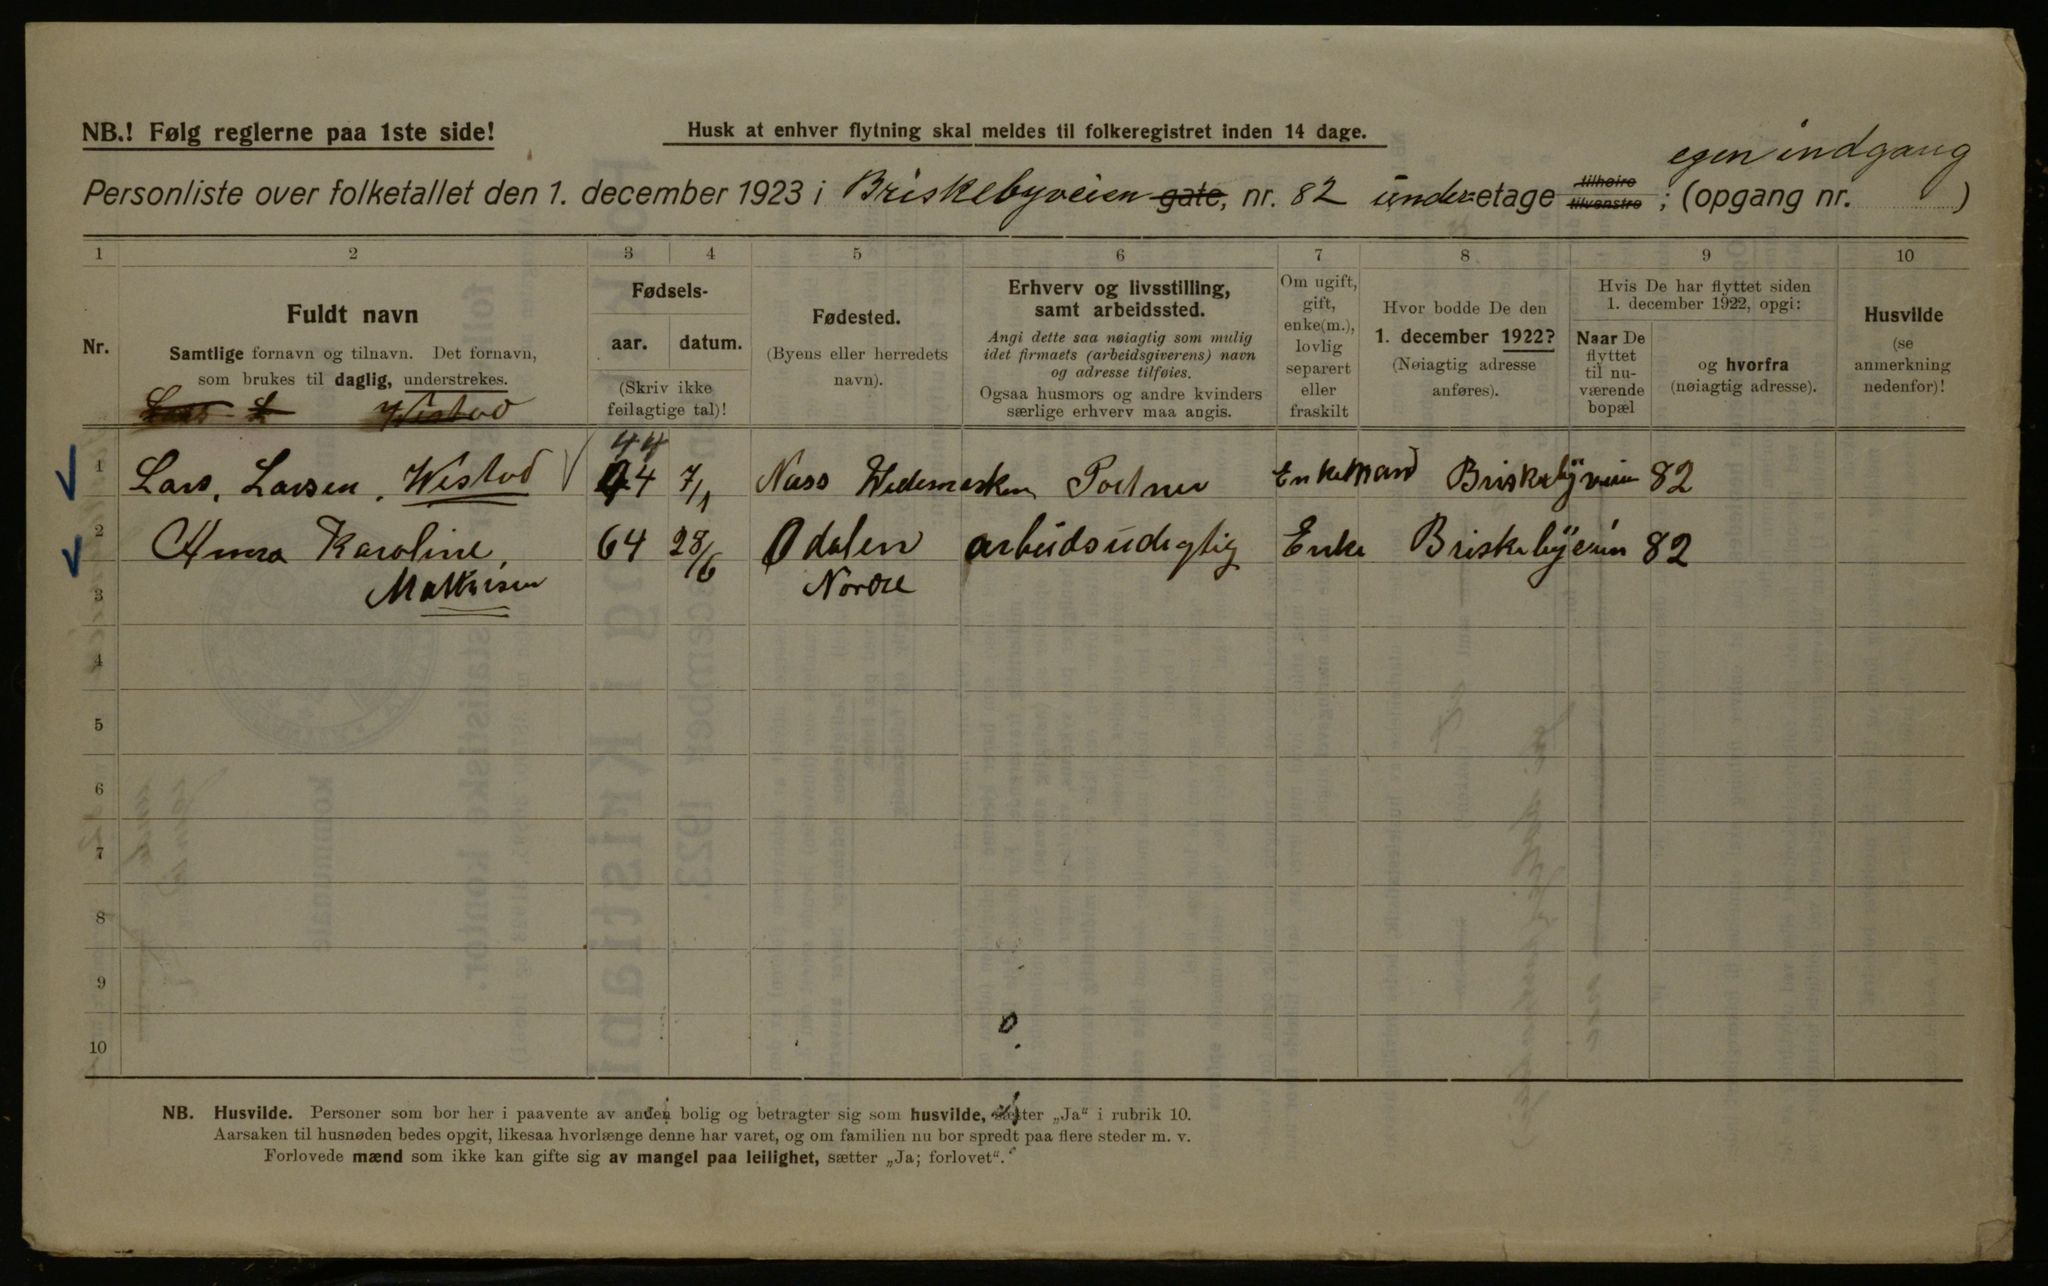 NB.! Følg reglerne paa 1ste side!
Husk at enhver flytning skal meldes til folkeregistret inden 14 dage.
egen indgang
Personliste over folketallet den 1. december 1923 i Briskebyveien gate, nr. 82 under etage tilhøire tilvenstre ; (opgang nr. )
1 2 3 4 5 6 7 8 9 10
Nr.
Fuldt navn
Samtlige fornavn og tilnavn. Det fornavn,
som brukes til daglig, understrekes.
Fødsels-
aar. datum.
(Skriv ikke
feilagtige tal)!
Fødested.
(Byens eller herredets
navn).
Erhverv og livsstilling,
samt arbeidssted.
Angi dette saa nøiagtig som mulig
idet firmaets (arbeidsgiverens) navn
og adresse tilføies.
Ogsaa husmors og andre kvinders
særlige erhverv maa angis.
Om ugift,
gift,
enke(m.),
lovlig
separert
eller
fraskilt
Hvor bodde De den
1. december 1922?
(Nøiagtig adresse
anføres).
Hvis De har flyttet siden
1. december 1922, opgi:
Naar De
flyttet
til nu-
værende
bopæl
og hvorfra
(nøiagtig adresse).
Husvilde
(se
anmerkning
nedenfor)!
Lars L Wistad
44
1 Lars, Larsen, Wistad 44 7/1 Næss Hedemarken Portner Enkemand Briskebyveien 82
2 Anna Karoline 64 28/6 Odalen arbeidsudygtig Enke Briskebyveien 82
3 Mathisen Nordre
4
5
6
7
8
9
10
NB. Husvilde. Personer som bor her i paavente av anden bolig og betragter sig som husvilde, sætter „Ja“ i rubrik 10.
Aarsaken til husnøden bedes opgit, likesaa hvorlænge denne har varet, og om familien nu bor spredt paa flere steder m. v.
Forlovede mænd som ikke kan gifte sig av mangel paa leilighet, sætter „Ja; forlovet“.